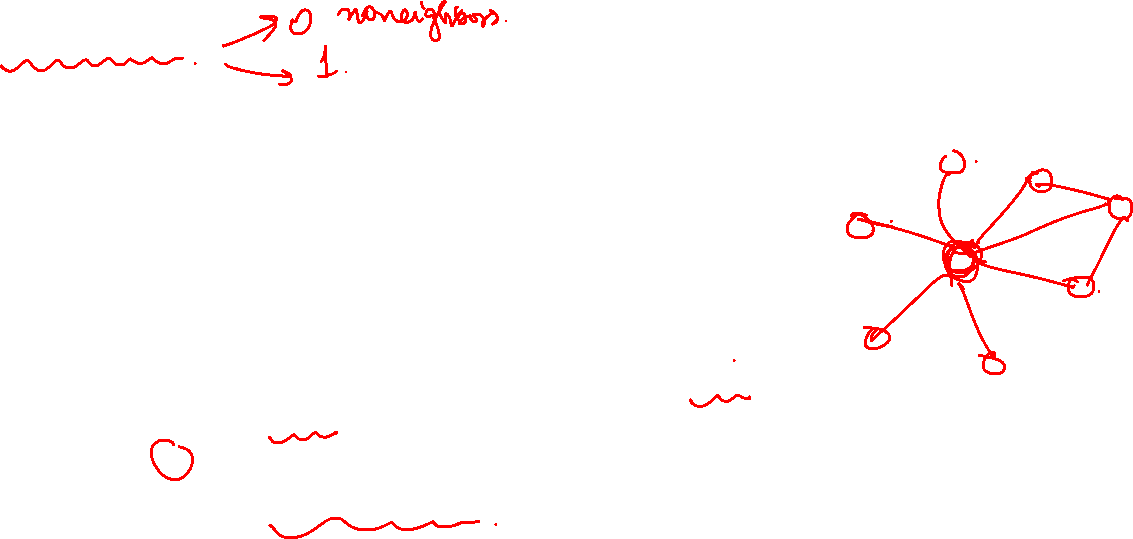 0 noneighbors.
1.